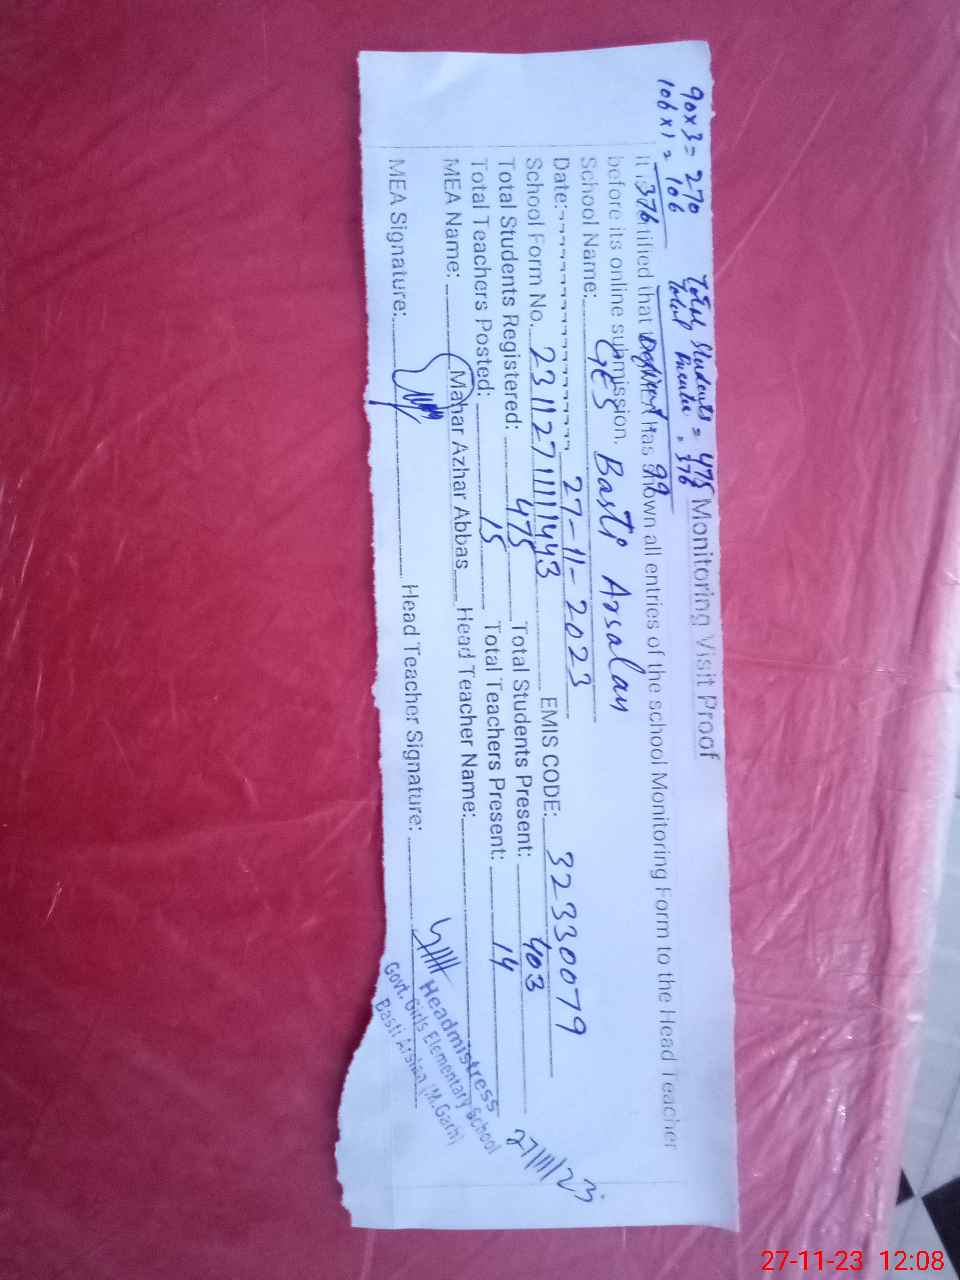 90x3 = 270
106x1 = 106
376
Total Students = 475
Total = 376
99
Monitoring Visit Proof
It that has shown all entries of the school Monitoring Form to the Head Teacher
before its online submission.
School Name: GES Basti Arsalan
Date: 27-11-2023
School Form No. 231127111111443 EMIS CODE: 32330079
Total Students Registered: 475 Total Students Present: 403
Total Teachers Posted: 15 Total Teachers Present: 14
MEA Name: Mahar Azhar Abbas Head Teacher Name:
MEA Signature: Head Teacher Signature:
Headmistress
Govt. Girls Elementary School
Basti Arslan (M.Garh)
27/11/23
27-11-23 12:08